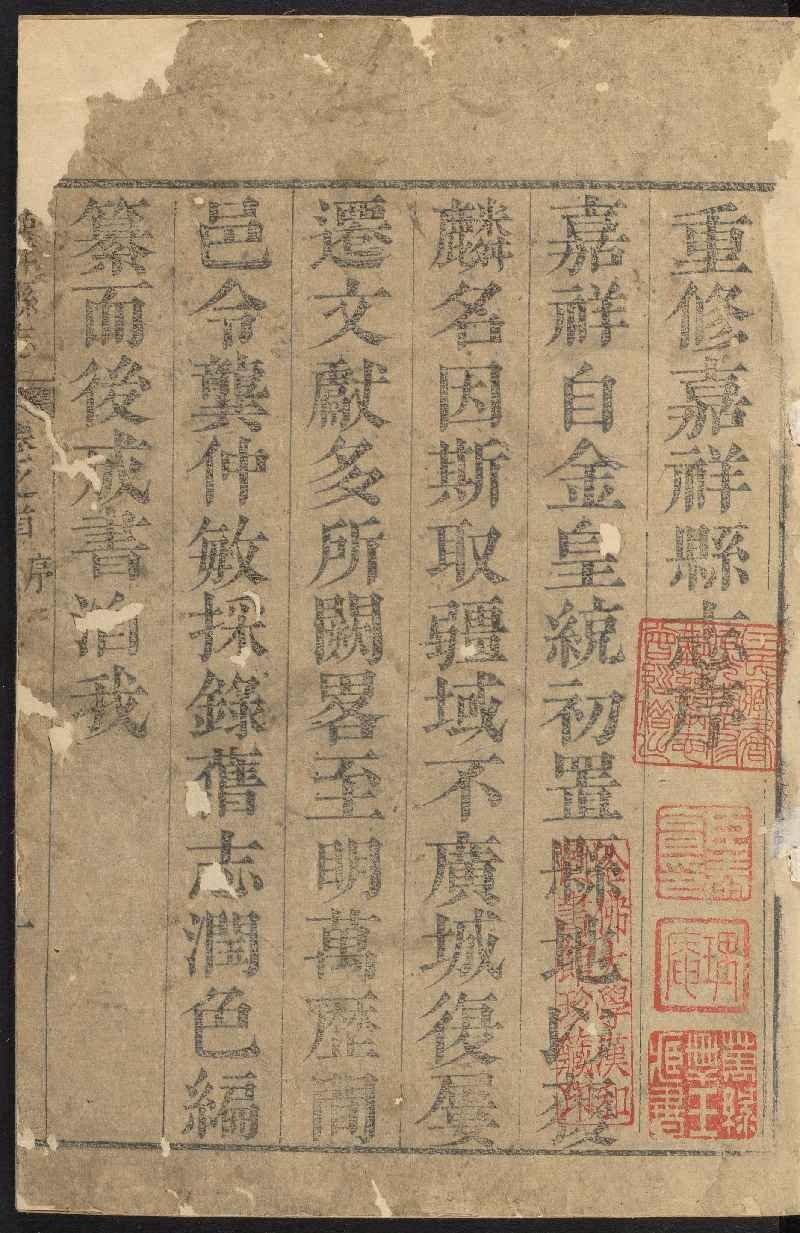 重修嘉祥縣志序
嘉祥自金皇統初置縣地以獲
麟名因斯取疆域不廣城復屢
遷文獻多所闕畧至明萬歷間
邑令龔仲敏採錄舊志潤色編
纂而後成書洎我
祥縣志 卷之首 序 一
哈佛大學漢和圖書館珍藏印